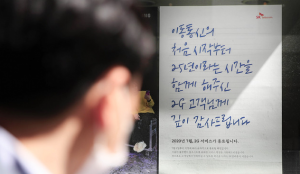 SK telecom
이동통신의
처음 시작부터
25년이라는 시간을
함께 해주신
2G 고객님께
깊이 감사드립니다
2020년 7월, 2G 서비스가 종료됩니다.